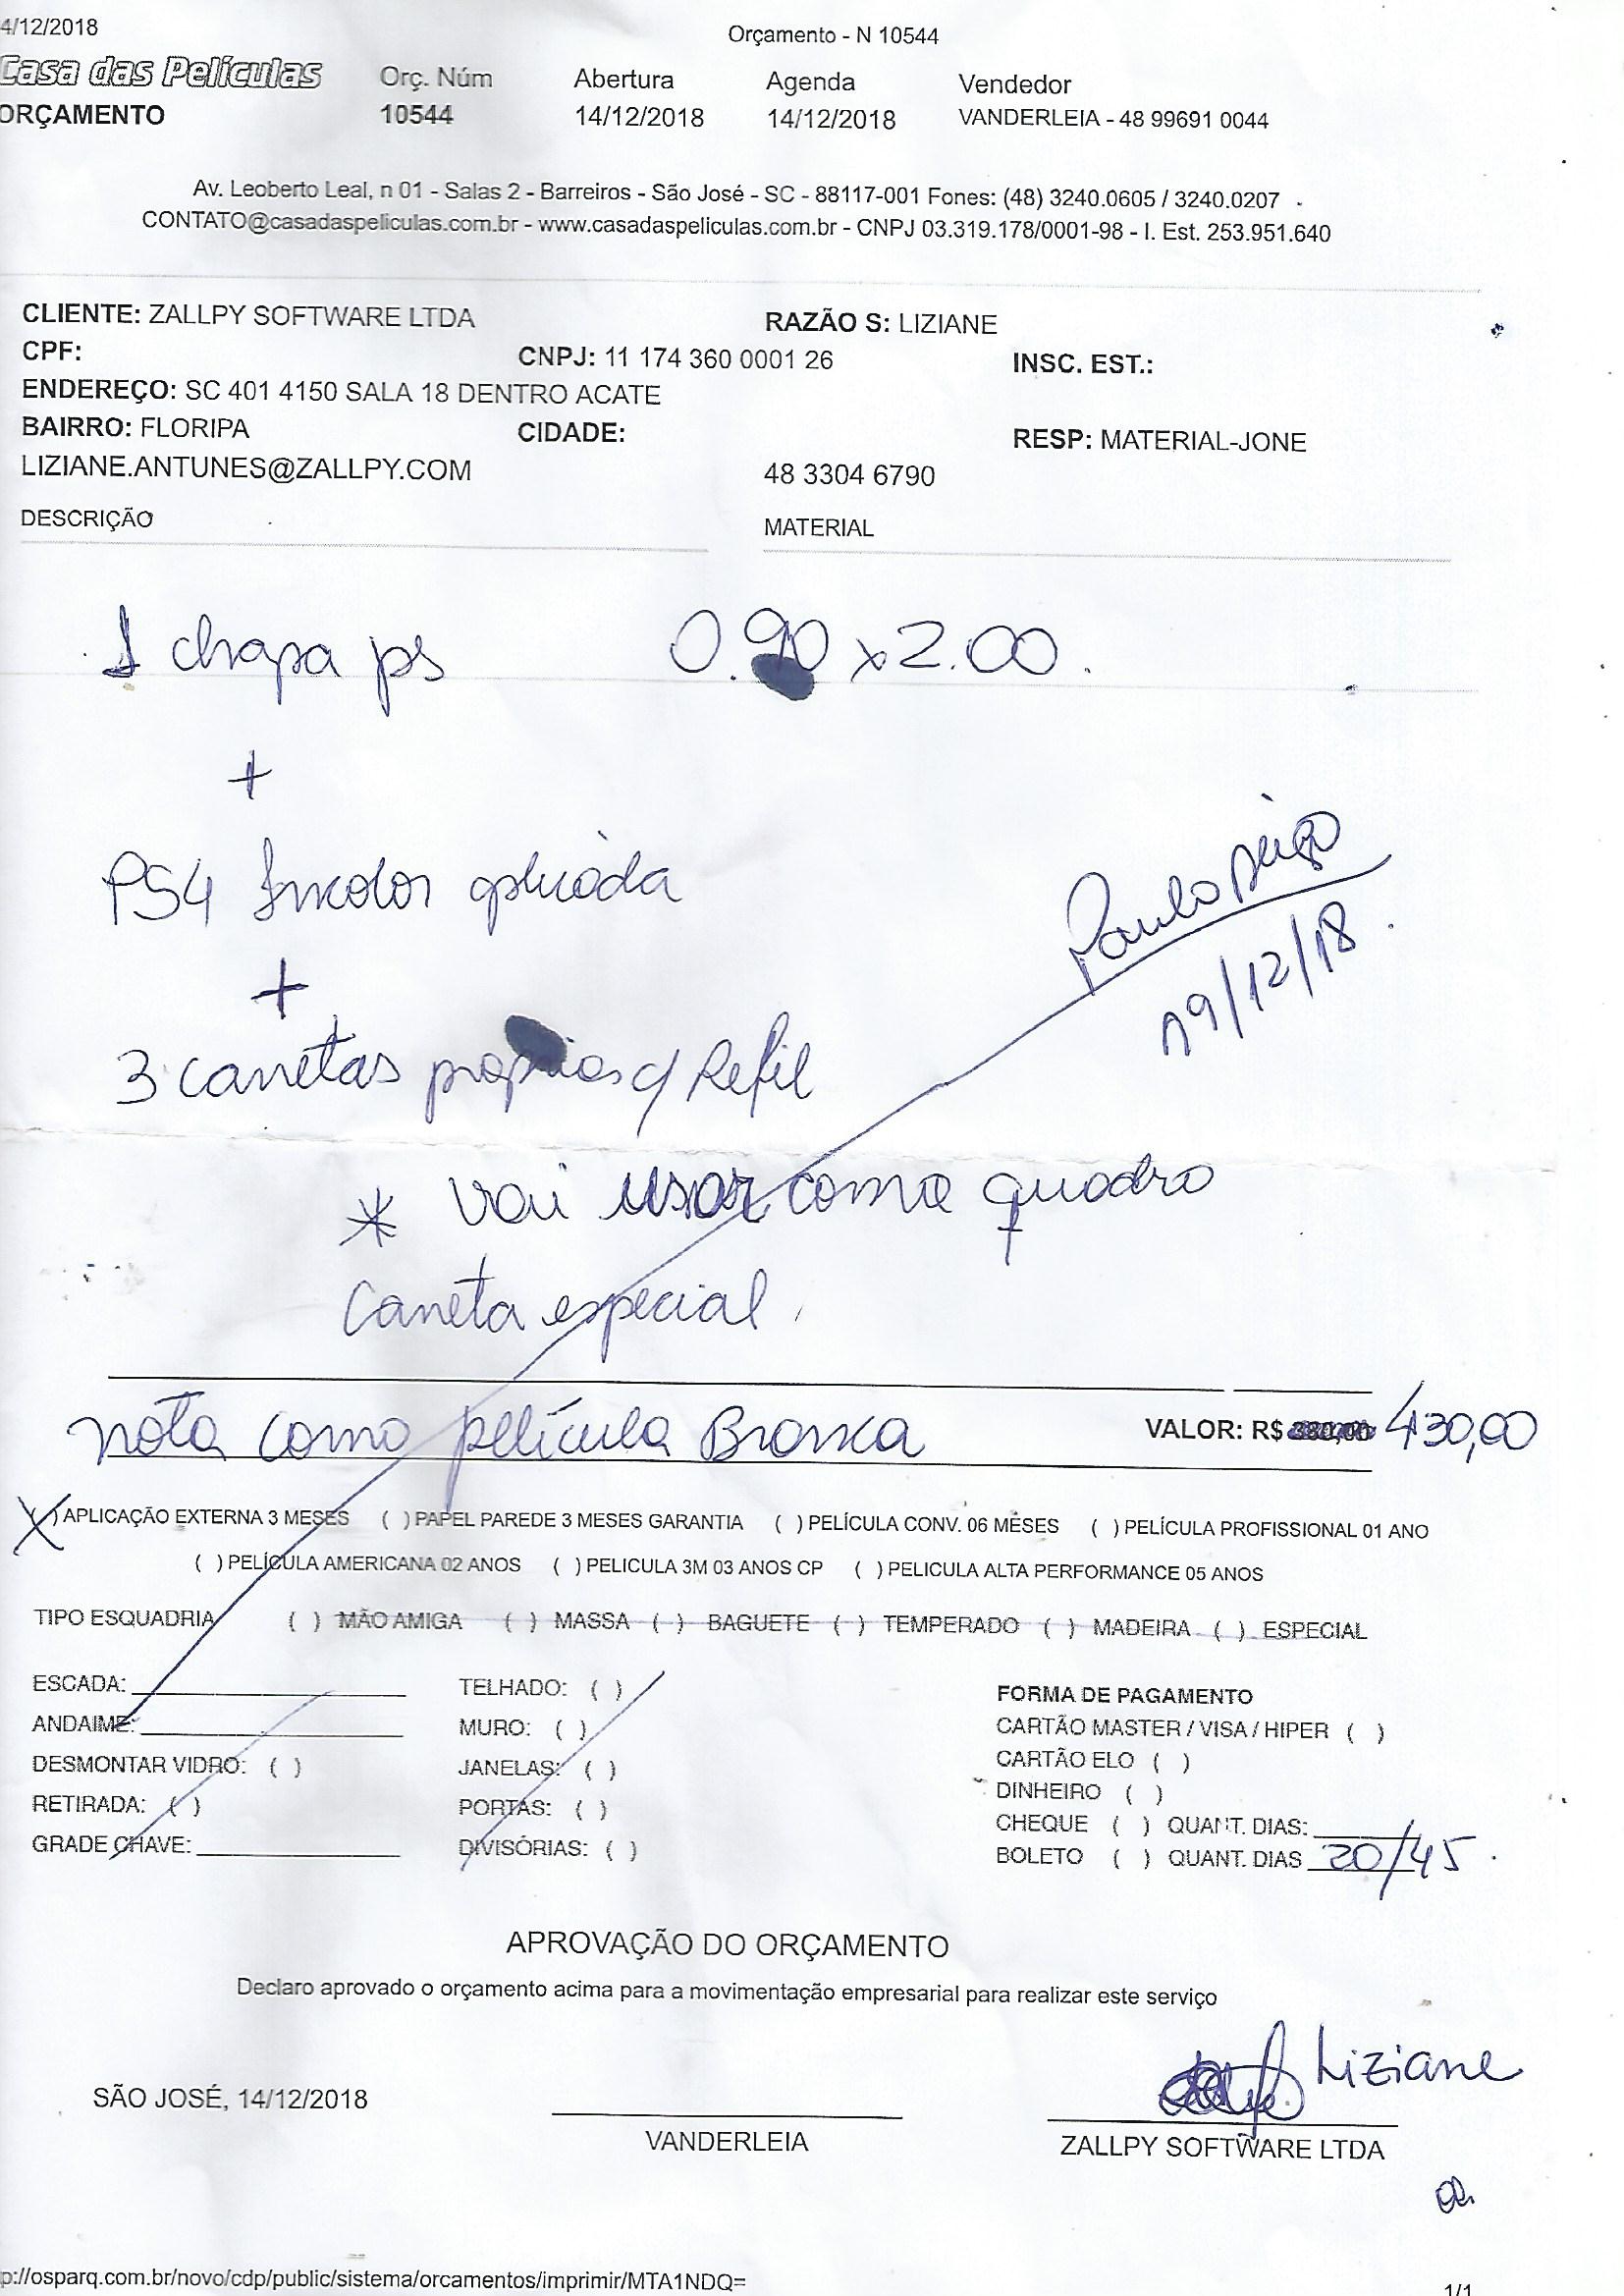 4/12/2018
Orçamento - N 10544
Casa das Películas
Orç. Núm Abertura Agenda Vendedor
ORÇAMENTO 10544 14/12/2018 14/12/2018 VANDERLEIA - 48 99691 0044
Av. Leoberto Leal, n 01 - Salas 2 - Barreiros - São José - SC - 88117-001 Fones: (48) 3240.0605 / 3240.0207
CONTATO@casadaspeliculas.com.br - www.casadaspeliculas.com.br - CNPJ 03.319.178/0001-98 - I. Est. 253.951.640
CLIENTE: ZALLPY SOFTWARE LTDA RAZÃO S: LIZIANE
CPF: CNPJ: 11 174 360 0001 26 INSC. EST.:
ENDEREÇO: SC 401 4150 SALA 18 DENTRO ACATE
BAIRRO: FLORIPA CIDADE: RESP: MATERIAL-JONE
LIZIANE.ANTUNES@ZALLPY.COM 48 3304 6790
DESCRIÇÃO MATERIAL
1 chapa ps 0.90 x 2.00.
+
PS4 Incolor aplicada
+
Paulo
19/12/18.
3 canetas proprias c/ Refil
* vai usar como quadro
caneta especial.
nota como película Branca VALOR: R$ 380,00 430,00
(X) APLICAÇÃO EXTERNA 3 MESES ( ) PAPEL PAREDE 3 MESES GARANTIA ( ) PELÍCULA CONV. 06 MESES ( ) PELÍCULA PROFISSIONAL 01 ANO
( ) PELÍCULA AMERICANA 02 ANOS ( ) PELICULA 3M 03 ANOS CP ( ) PELICULA ALTA PERFORMANCE 05 ANOS
TIPO ESQUADRIA ( ) MÃO AMIGA ( ) MASSA ( ) BAGUETE ( ) TEMPERADO ( ) MADEIRA ( ) ESPECIAL
ESCADA: TELHADO: ( ) FORMA DE PAGAMENTO
ANDAIME: MURO: ( ) CARTÃO MASTER / VISA / HIPER ( )
DESMONTAR VIDRO: ( ) JANELAS: ( ) CARTÃO ELO ( )
RETIRADA: ( ) PORTAS: ( ) DINHEIRO ( )
GRADE CHAVE: DIVISÓRIAS: ( ) CHEQUE ( ) QUANT. DIAS:
BOLETO ( ) QUANT. DIAS 20/45.
APROVAÇÃO DO ORÇAMENTO
Declaro aprovado o orçamento acima para a movimentação empresarial para realizar este serviço
Liziane
SÃO JOSÉ, 14/12/2018
VANDERLEIA ZALLPY SOFTWARE LTDA
p://osparq.com.br/novo/cdp/public/sistema/orcamentos/imprimir/MTA1NDQ= 1/1